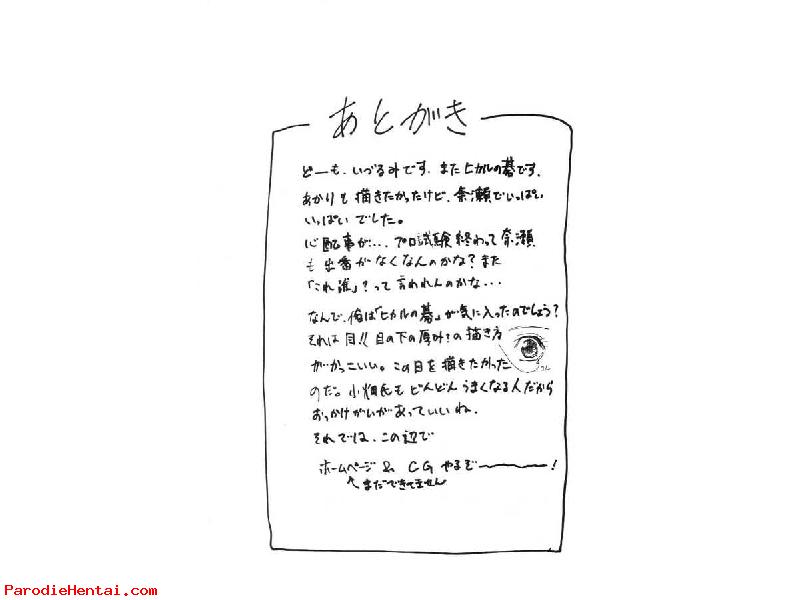 あとがき
どーも、いづるみです。またヒカルの碁です。
あかりも描きたかったけど、奈瀬でいっぱい
いっぱいでした。
心配事が…プロ試験終わって奈瀬
も出番がなくなんのかな？また
「これ誰」？って言われんのかな…
なんで、俺は「ヒカルの碁」が気に入ったのでしょう？
それは目!!目の下の厚み？の描き方
がかっこいい。この目を描きたかった
のだ。小畑氏もどんどんうまくなる人だから
おっかけがいがあっていいね。
それでは、この辺で
ホームページ & CG やるぞ――!
まだできてません
ParodieHentai.com